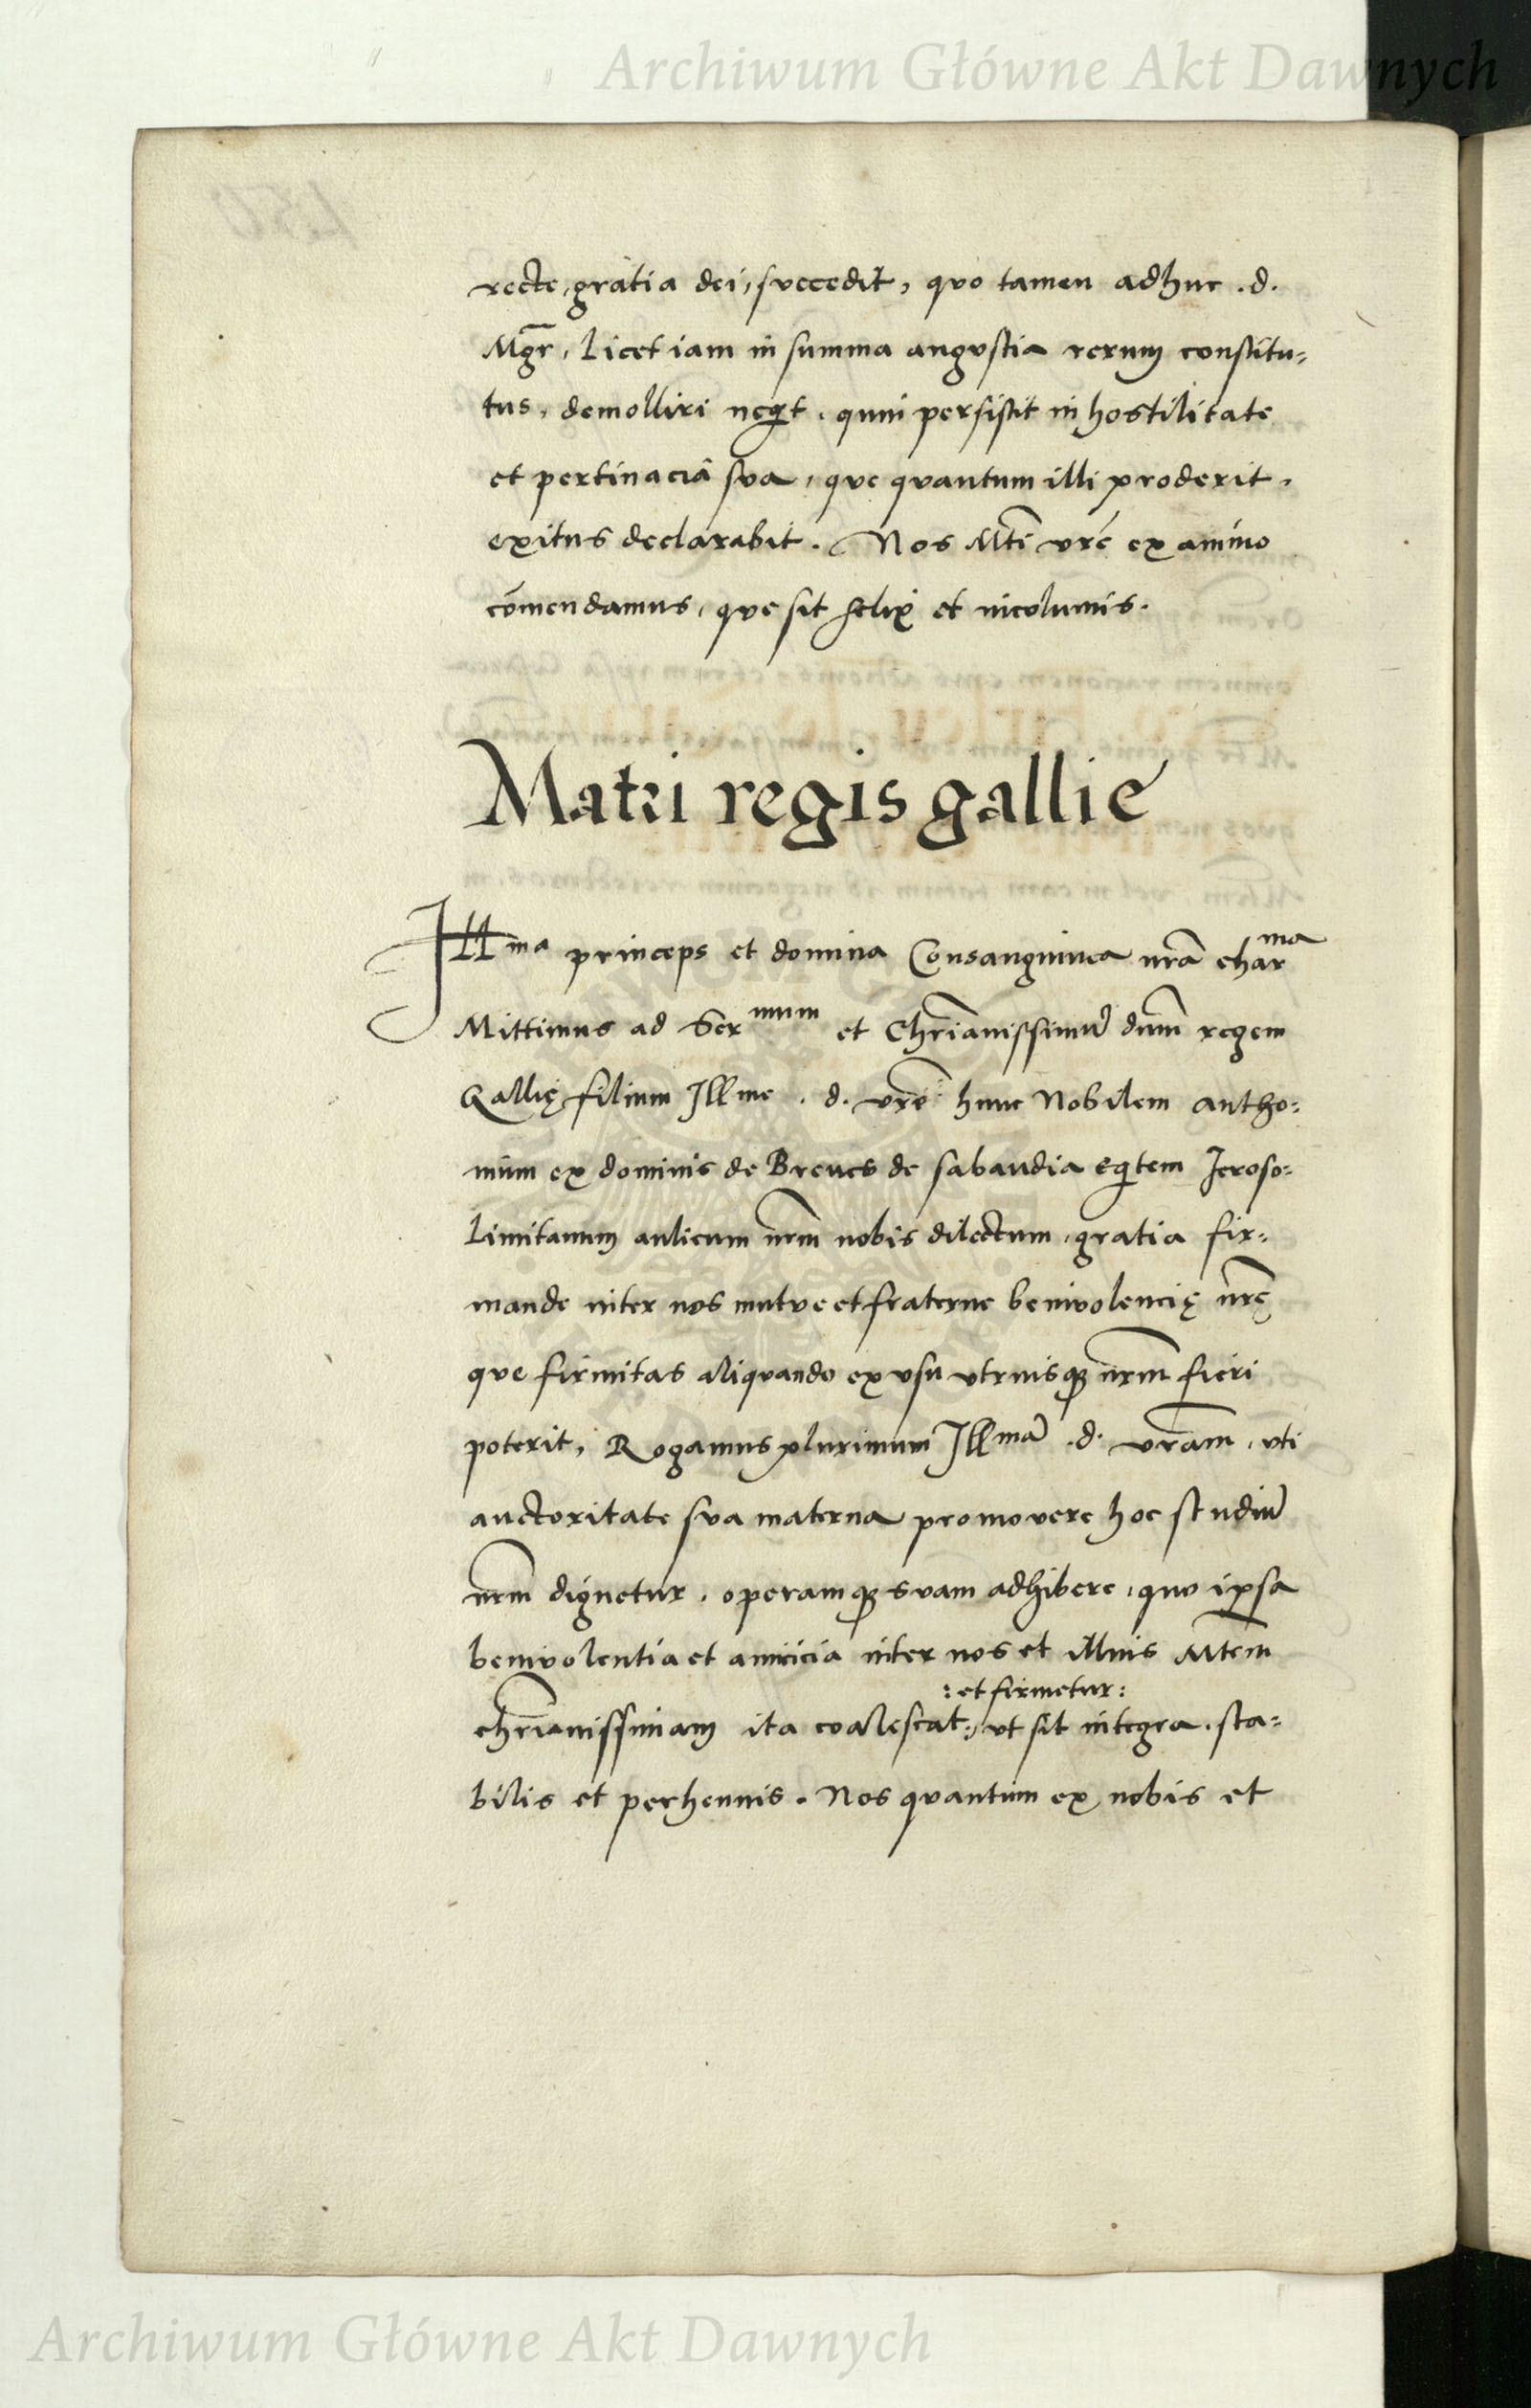 Archiwum Główne Akt Dawnych
recte, gratia dei, succedit, quo tamen adhuc .d.
Mgr̄, licet iam in summa angustia rerum constitu=
tus, demolliri neq̇t. quin persistit in hostilitate
et pertinaciâ sua, que quantum illi proderit,
exitus declarabit. Nos Mti̅ vre̅ ex animo
co̅mendamus, que sit felix et incolumis.
Matri regis gallie
Ill ma princeps et domina Consanguinea nra̅ char ma
Mittimus ad Ser mum et Chri̅anissimu̅ dnm̅ regem
Gallię filium Ill me . d. vre̅ hunc Nobilem antho=
nium ex dominis de Breues de sabaudia eq̇tem Jeroso=
limitanum aulicum nrm̅ nobis dilectum, gratia fir=
mande inter nos mutue et fraterne beniuolencię nrę̅
que firmitas aliquando ex usu utriusq̨ nrm̅ fieri
poterit, Rogamus plurimum Ill ma̅ .d. vram̅, uti
auctoritate sua materna promouere hoc studiu̅
nrm̅ dignetur, operamq̨ suam adhibere, quo ipsa
beniuolentia et amicicia inter nos et illius Mtem̅
:et firmetur:
chri̅anissimam ita coalescat:, ut sit integra, sta=
bilis et perhennis. Nos quantum ex nobis et
Archiwum Główne Akt Dawnych